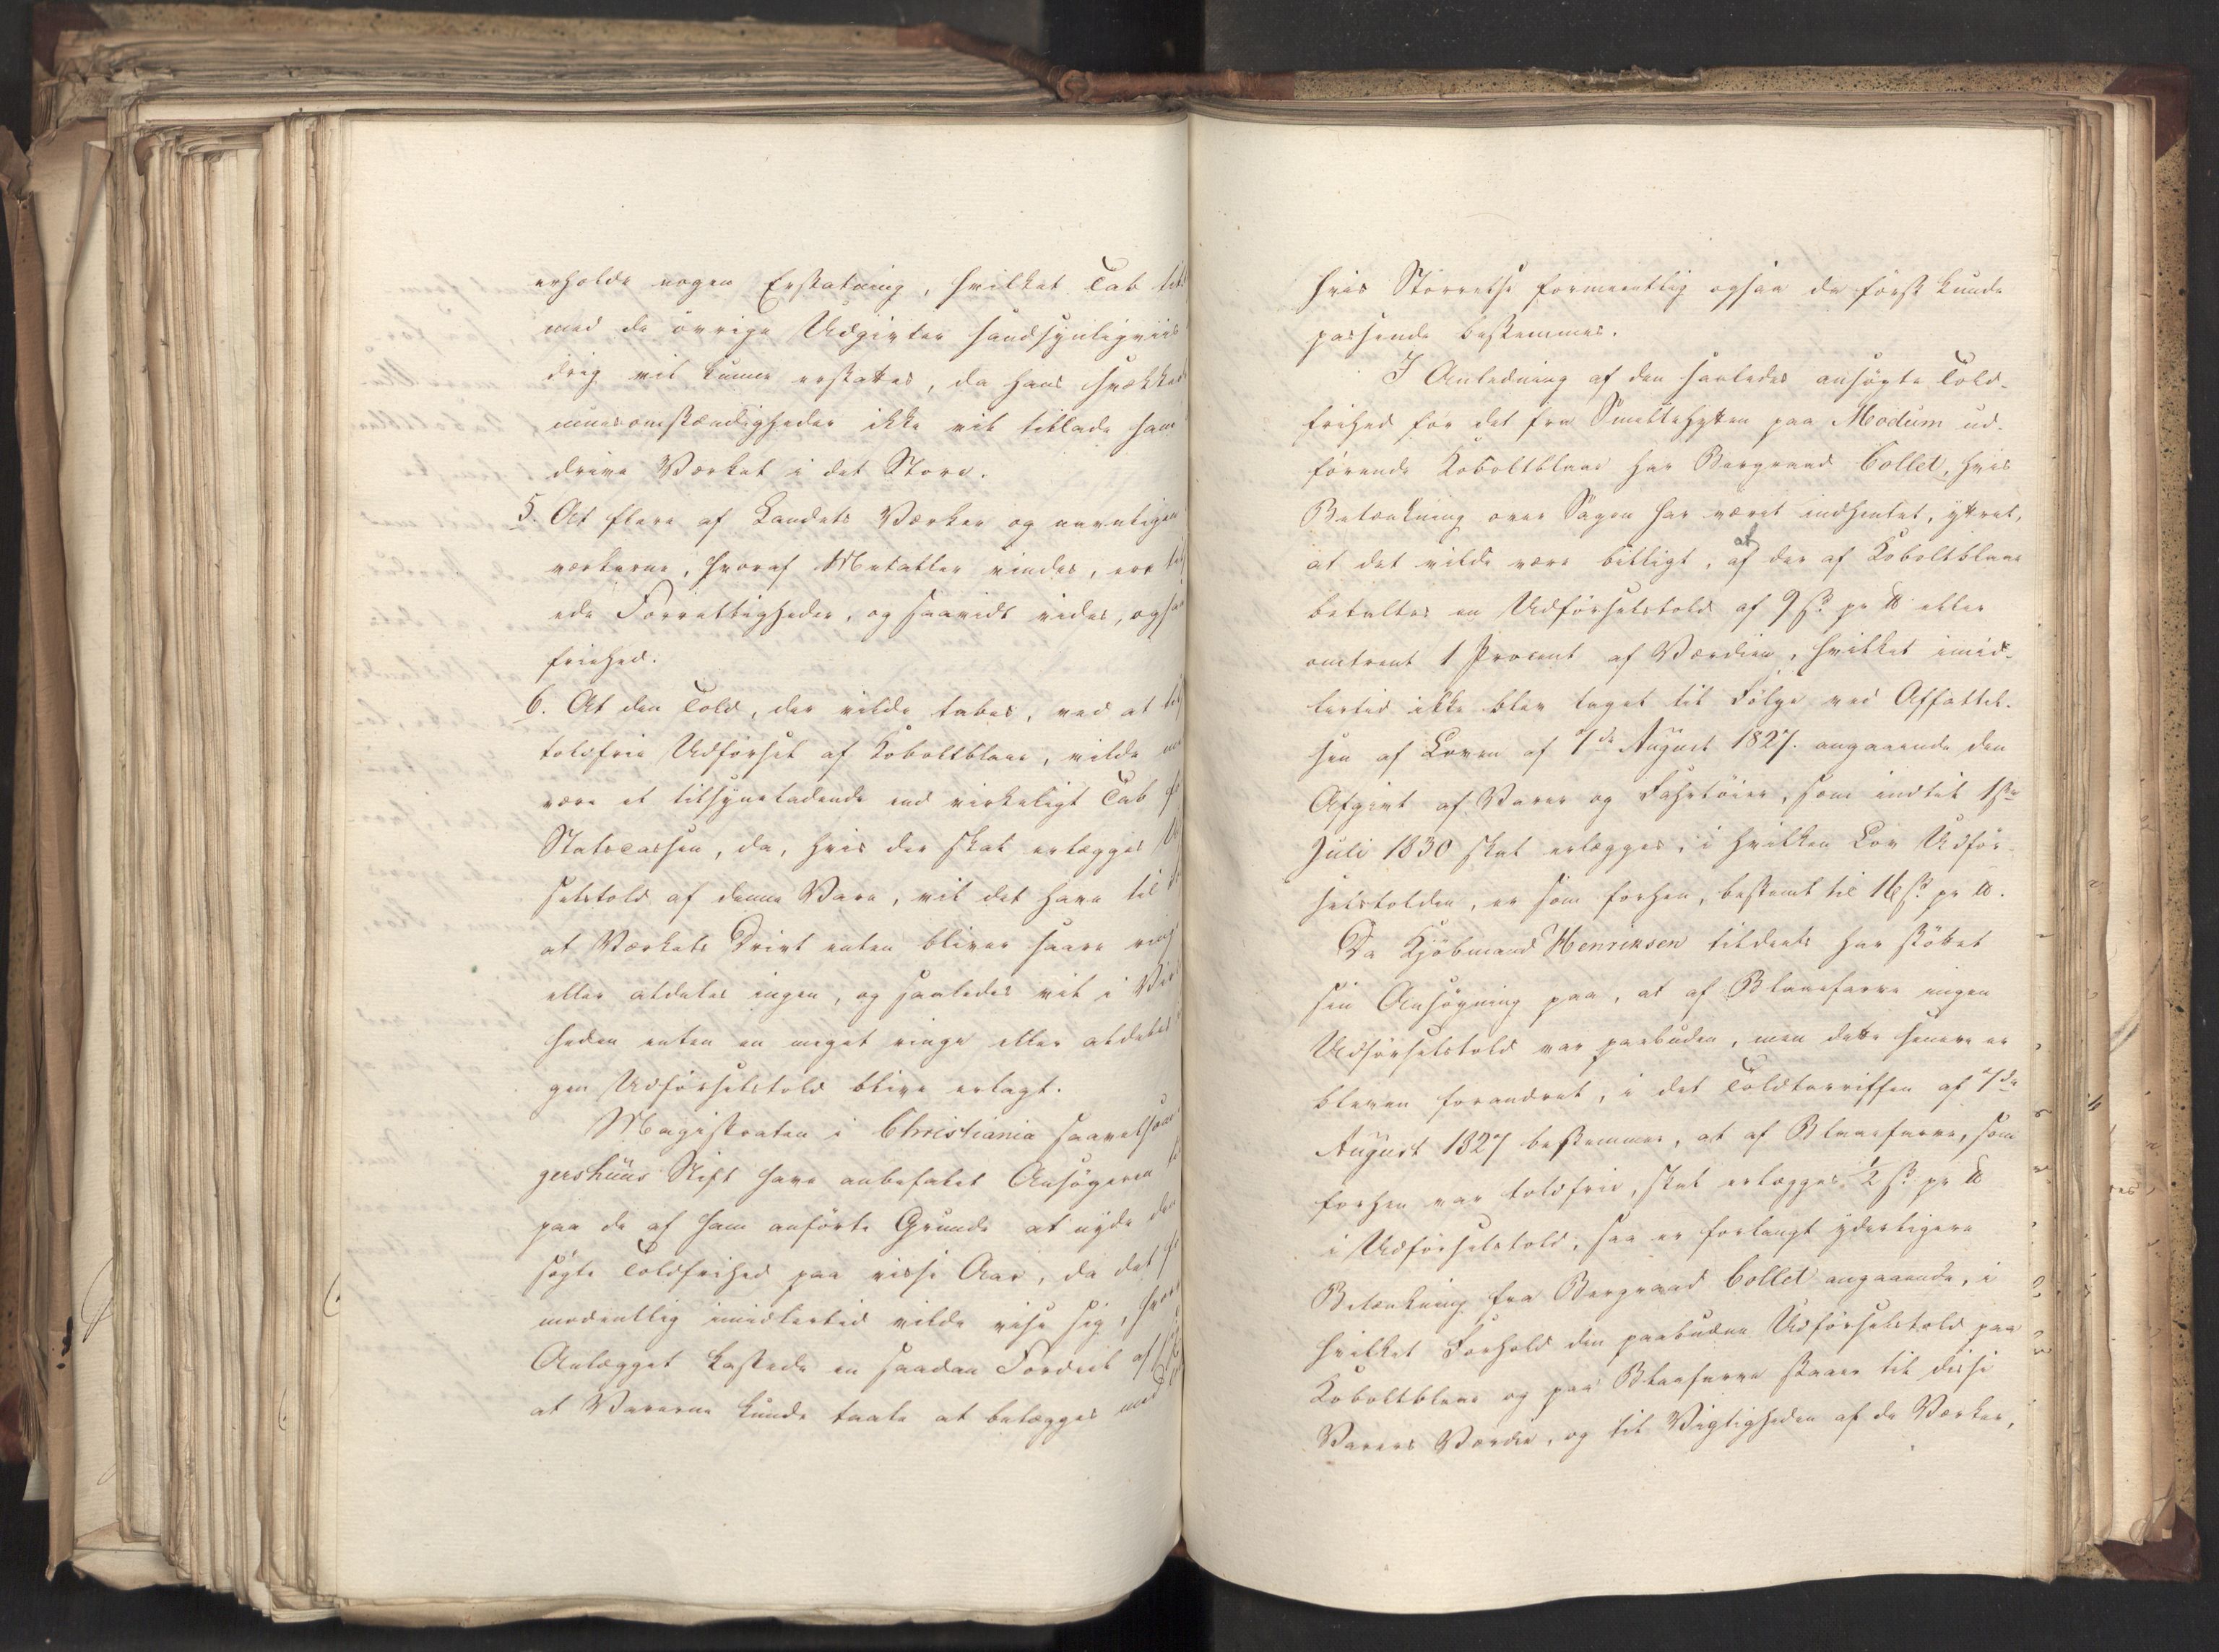 erholde nogen Erstatning, hvilket Tab til
med de øvrige Udgivter sandsynligviis
drig vil kunne erstattes, da hans svækkede
muesomstændigheder ikke vil tillade ham
drive Værket i det Store.
5. At flere af Landets Værker og navnligen
værkerne, hvoraf Metaller vindes, ere til
ede Forrettigheder, og saavidt vides, ogsaa
friehed.
6. At den Told, der vilde tabes, ved at til
toldfrie Udførsel af Koboltblaae, vilde
være et tilsyneladende end virkeligt Tab
Statscassen, da, hvis der skal erlægges
selstold af denne Vare, vil det have til
at Værkets Drivt enten bliver saare ring
eller aldeles ingen, og saaledes vil i Vir
heden enten en meget ringe eller aldeles
gen Udførselstold blive erlagt.
Magistraten i Christiania saavelsom
gershuus Stift have anbefalet Ansøgeren
paa de af ham anførte Grunde at nyde den
søgte Toldfrihed paa visse Aar, da det
modentlig imidlertid vilde vise sig,
Anlægget kastede en saadan Fordeel af
at Varerne kunde taale at belægges med
hvis Størrelse formeentlig ogsaa da først kunde
passende bestemmes.
I Anledning af den saaledes ansøgte Told-
frihed for det fra Smeltehytten paa Modum ud-
førende Koboltblaae har Bergraad Collet, hvis
Betænkning over Sagen har været indhentet, yttret,
at det vilde være billigt, at der af Koboltblaae
betaltes en Udførselstold af 9 s. pr ℔ eller
omtrent 1 Procent af Værdien, hvilket imid-
lertid ikke blev taget til Følge ved Affattel-
sen af Loven af 7de August 1827. angaaende den
Afgivt af Varer og Fahrtøier, som indtil 1ste
Juli 1830 skal erlægges, i hvilken Lov Udfør-
selstolden, er som forhen, bestemt til 16 s. pr ℔.
Da Kjøbmand Henriksen tildeels har støttet
sin Ansøgning paa, at af Blaaefarve ingen
Udførselstold var paabuden, men dette senere er
bleven forandret, i det Toldtariffen af 7de
August 1827 bestemmer, at af Blaaefarve, som
forhen var toldfrie, skal erlægges ½ s. pr ℔
i Udførselstold, saa er forlangt yderligere
Betænkning fra Bergraad Collet angaaende, i
hvilket Forhold den paabudne Udførselstold paa
Koboltblaae og paa Blaafarve staaer til disse
Varers Værdie, og til Vigtigheden af de Værker,